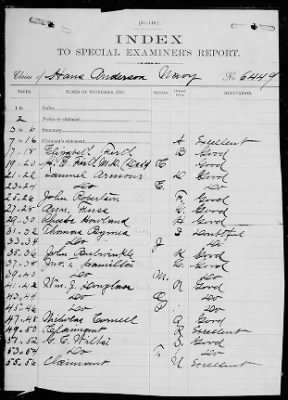 (3—446.)
INDEX
TO SPECIAL EXAMINER'S REPORT.
Claim of Hans Anderson Navy No. 6449
PAGES. NAMES OF WITNESSES, ETC. REPUTATION.
1 Index.
2 Index.
3-6 Summary.
7-16 Claimant's statement. A Excellent
17-18 Elizabeth B Good
19-20 C Good
21-22 Samuel Armour D Good
23-24 Do E Do
25-26 John Robertson F Good
27-28 Good
29-30 Howland Good
31-32 Thomas Byrnes I Doubtful
33-34 Do J Do
35-36 John Bulwinkle K Good
37-38 Hamilton L Good
39-40 Do M Do
41-42 Wm. J. N Good
43-44 Do Do
45-46 Do Do
47-48 Nicholas Cornell Q Good
49-50 Claimant R Excellent
51-52 G. C. S Good
53-54 Do T Do
55-56 Claimant U Excellent